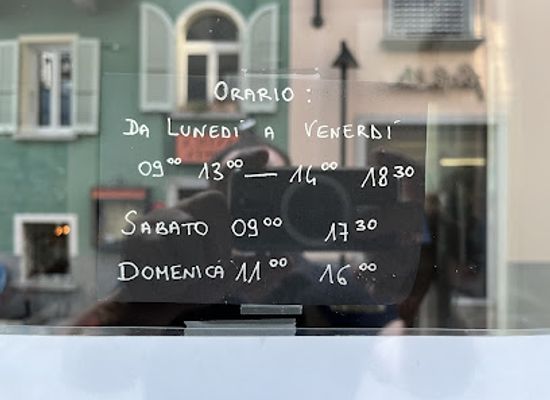 ORARIO:
DA LUNEDI' A VENERDI'
09⁰⁰ 13⁰⁰ — 14⁰⁰ 18³⁰
SABATO 09⁰⁰ 17³⁰
DOMENICA 11⁰⁰ 16⁰⁰